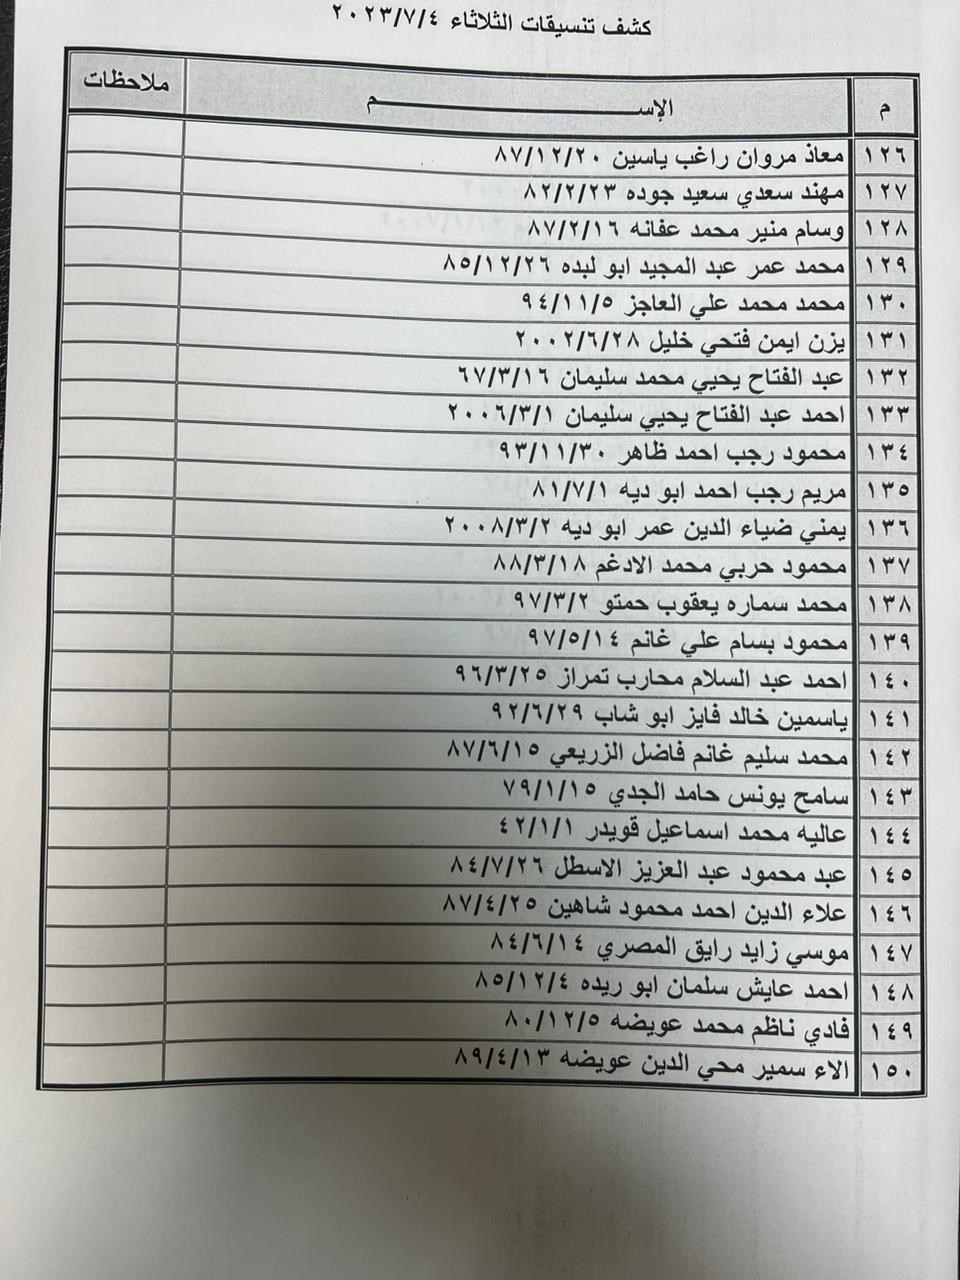 كشف تنسيقات الثلاثاء ٢٠٢٣/٧/٤
م الإســــــــم ملاحظات
١٢٦ معاذ مروان راغب ياسين ٨٧/١٢/٢٠
١٢٧ مهند سعدي سعيد جوده ٨٢/٢/٢٣
١٢٨ وسام منير محمد عفانه ٨٧/٢/١٦
١٢٩ محمد عمر عبد المجيد ابو لبده ٨٥/١٢/٢٦
١٣٠ محمد محمد علي العاجز ٩٤/١١/٥
١٣١ يزن ايمن فتحي خليل ٢٠٠٢/٦/٢٨
١٣٢ عبد الفتاح يحيي محمد سليمان ٦٧/٣/١٦
١٣٣ احمد عبد الفتاح يحيي سليمان ٢٠٠٦/٣/١
١٣٤ محمود رجب احمد ظاهر ٩٣/١١/٣٠
١٣٥ مريم رجب احمد ابو ديه ٨١/٧/١
١٣٦ يمني ضياء الدين عمر ابو ديه ٢٠٠٨/٣/٢
١٣٧ محمود حربي محمد الادغم ٨٨/٣/١٨
١٣٨ محمد سماره يعقوب حمتو ٩٧/٣/٢
١٣٩ محمود بسام علي غانم ٩٧/٥/١٤
١٤٠ احمد عبد السلام محارب تمراز ٩٦/٣/٢٥
١٤١ ياسمين خالد فايز ابو شاب ٩٢/٦/٢٩
١٤٢ محمد سليم غانم فاضل الزريعي ٨٧/٦/١٥
١٤٣ سامح يونس حامد الجدي ٧٩/١/١٥
١٤٤ عاليه محمد اسماعيل قويدر ٤٢/١/١
١٤٥ عبد محمود عبد العزيز الاسطل ٨٤/٧/٢٦
١٤٦ علاء الدين احمد محمود شاهين ٨٧/٤/٢٥
١٤٧ موسي زايد رايق المصري ٨٤/٦/١٤
١٤٨ احمد عايش سلمان ابو ريده ٨٥/١٢/٤
١٤٩ فادي ناظم محمد عويضه ٨٠/١٢/٥
١٥٠ الاء سمير محي الدين عويضه ٨٩/٤/١٣